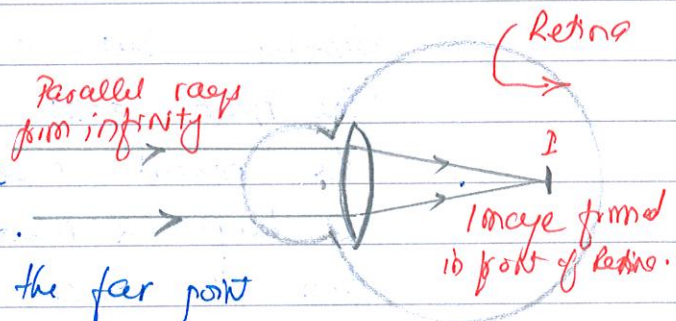 Retina
Parallel rays
from infinity
I
Image formed
in front of Retina.
the far point